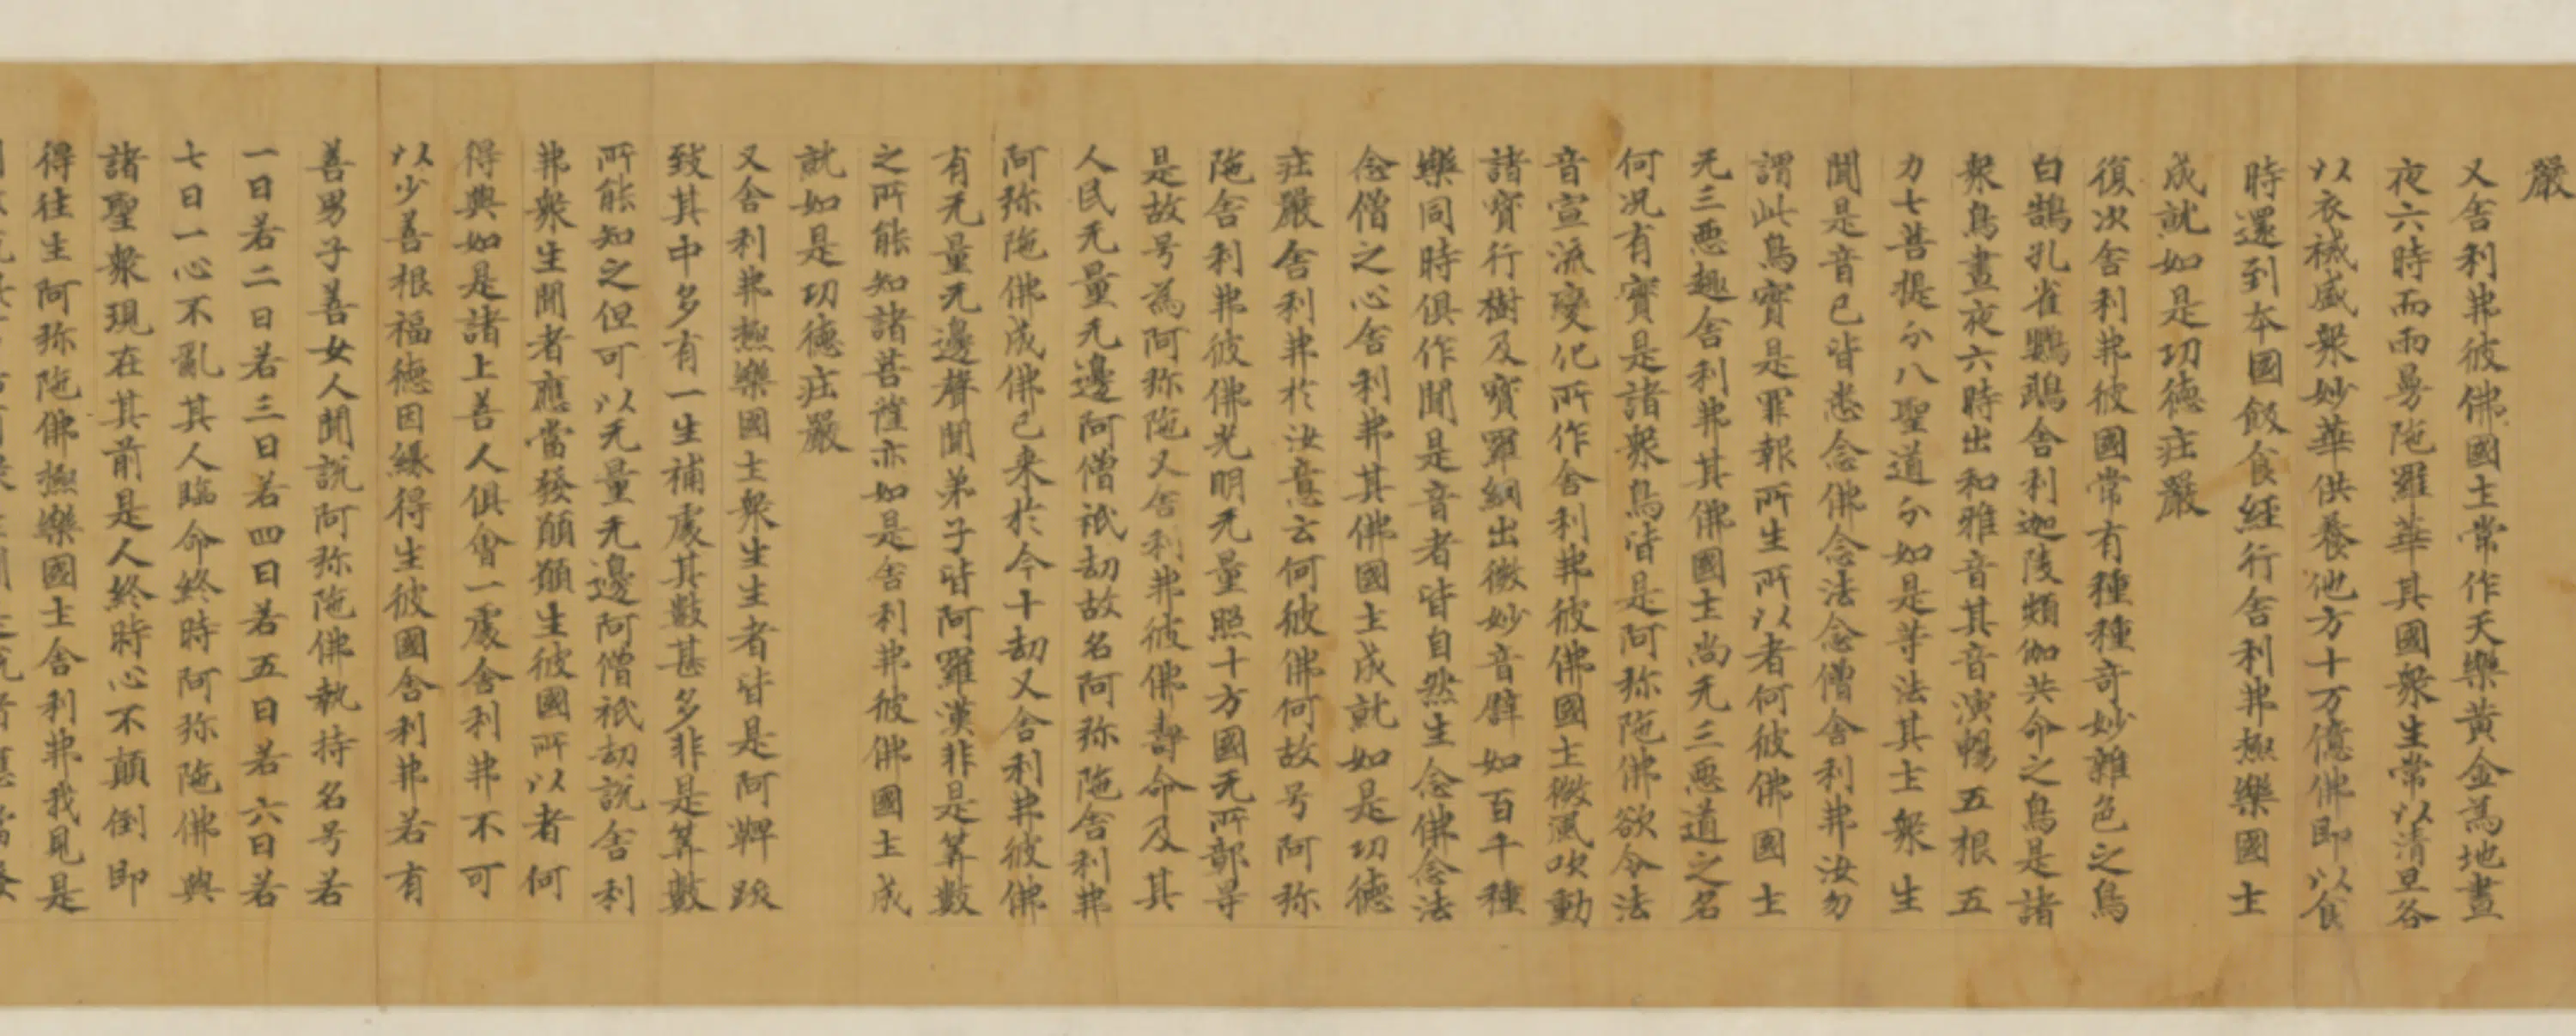 嚴
又舍利弗彼佛國土常作天樂黃金為地晝
夜六時而雨曼陁羅華其國衆生常以清旦各
以衣裓盛衆妙華供養他方十万億佛即以食
時還到本國飯食經行舍利弗極樂國土
成就如是功德庄嚴
復次舍利弗彼國常有種種奇妙雜色之鳥
白鵠孔雀鸚鵡舍利迦陵頻伽共命之鳥是諸
衆鳥晝夜六時出和雅音其音演暢五根五
力七菩提分八聖道分如是等法其土衆生
聞是音已皆悉念佛念法念僧舍利弗汝勿
謂此鳥實是罪報所生所以者何彼佛國土
无三惡趣舍利弗其佛國土尚无三惡道之名
何况有實是諸衆鳥皆是阿弥陁佛欲令法
音宣流變化所作舍利弗彼佛國土微風吹動
諸寶行樹及寶羅網出微妙音辟如百千種
樂同時俱作聞是音者皆自然生念佛念法
念僧之心舍利弗其佛國土成就如是功德
庄嚴舍利弗於汝意云何彼佛何故号阿弥
陁舍利弗彼佛光明无量照十方國无所鄣㝵
是故号為阿弥陁又舍利弗彼佛壽命及其
人民无量无邊阿僧祇劫故名阿弥陁舍利弗
阿弥陁佛成佛已来於今十劫又舍利弗彼佛
有无量无邊聲聞弟子皆阿羅漢非是筭數
之所能知諸菩薩亦如是舍利弗彼佛國土成
就如是功德庄嚴
又舍利弗極樂國土衆生生者皆是阿鞞跋
致其中多有一生補處其數甚多非是筭數
所能知之但可以无量无邊阿僧祇劫說舍利
弗衆生聞者應當發願願生彼國所以者何
得與如是諸上善人俱會一處舍利弗不可
以少善根福德因緣得生彼國舍利弗若有
善男子善女人聞說阿弥陁佛執持名号若
一日若二日若三日若四日若五日若六日若
七日一心不亂其人臨命終時阿弥陁佛與
諸聖衆現在其前是人終時心不顛倒即
得往生阿弥陁佛極樂國土舍利弗我見是